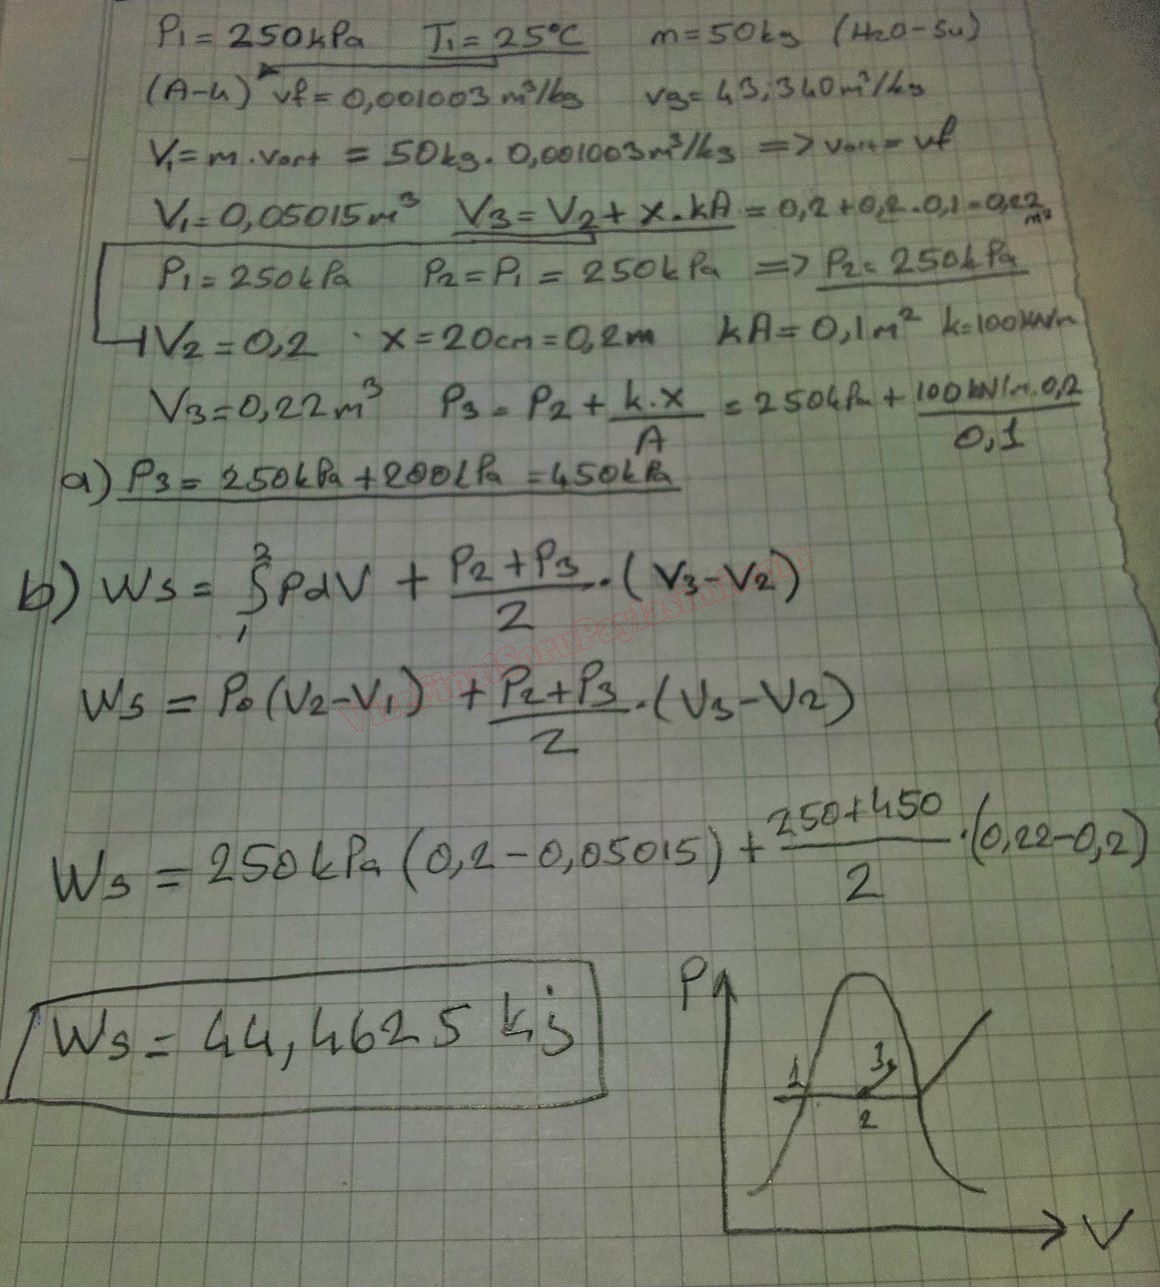 P1 = 250kPa T1 = 25°C m = 50kg (H2O-Su)
(A-4) vf = 0,001003 m³/kg vg = 43,340 m³/kg
V1 = m.vort = 50kg. 0,001003 m³/kg => vort = vf
V1 = 0,05015 m³ V3 = V2 + x.kA = 0,2 + 0,2.0,1 = 0,22 m³
P1 = 250kPa P2 = P1 = 250kPa => P2 = 250kPa
V2 = 0,2 x = 20cm = 0,2m kA = 0,1m² k = 100kN/m
V3 = 0,22m³ P3 = P2 + k.x/A = 250kPa + 100kN/m.0,2/0,1
a) P3 = 250kPa + 200kPa = 450kPa
b) Ws = ∫₁² PdV + P2+P3/2 . (V3-V2)
Ws = P0 (V2-V1) + P2+P3/2 . (V3-V2)
Ws = 250kPa (0,2-0,05015) + 250+450/2 . (0,22-0,2)
Ws = 44,4625 kj
P
1
3
2
V